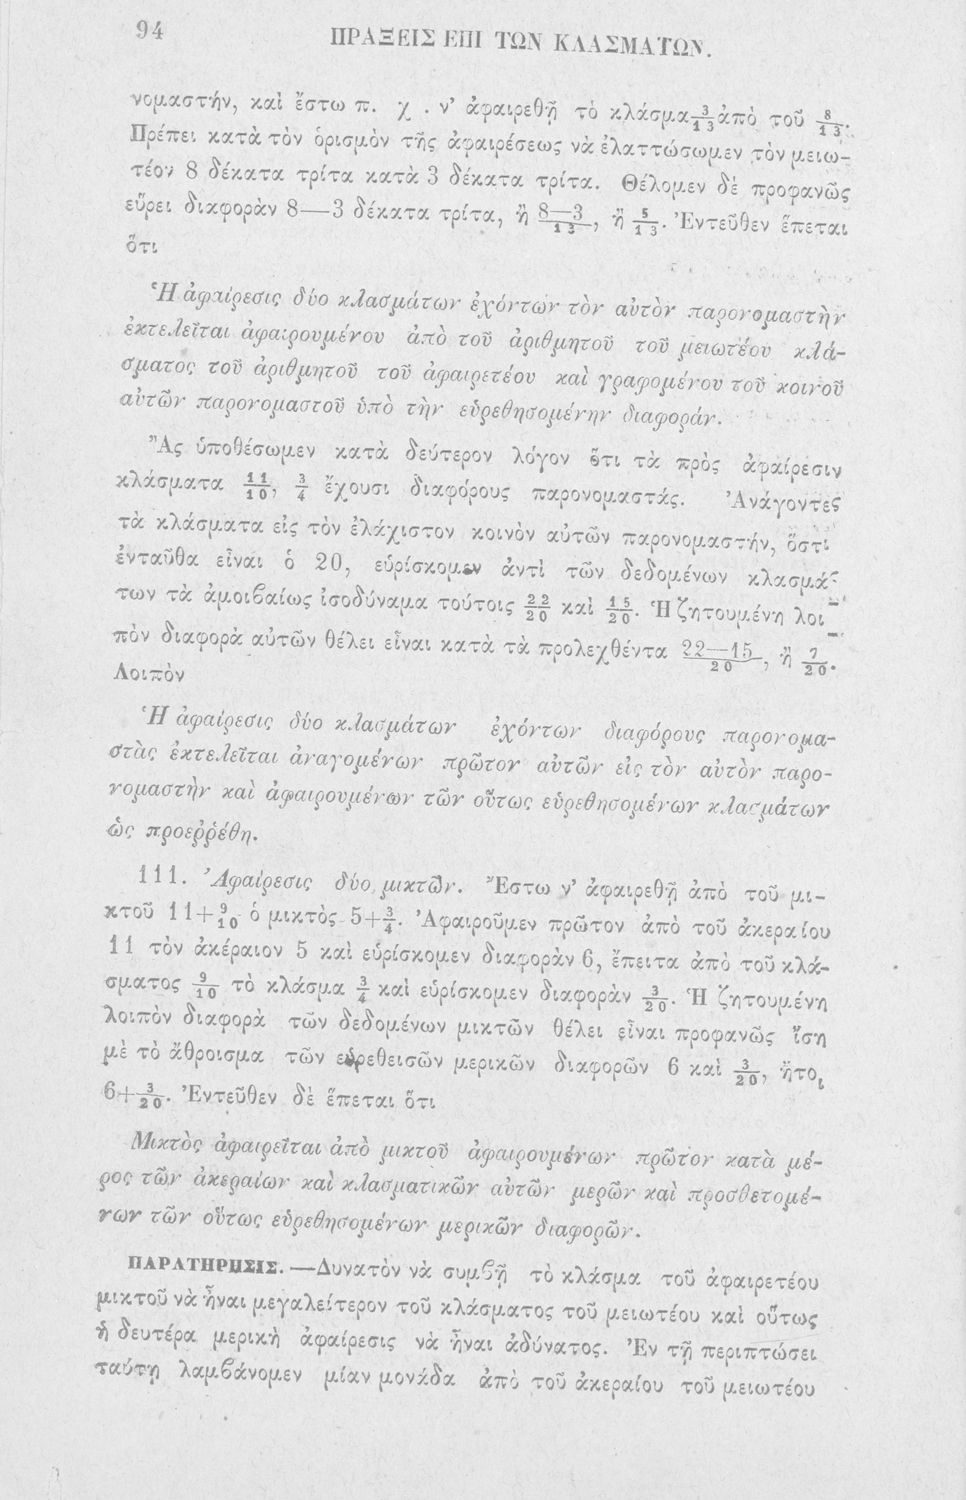 94
ΠΡΑΞΕΙΣ ΕΠΙ ΤΩΝ ΚΛΑΣΜΑΤΩΝ.
νομαστήν, καὶ ἔστω π. χ. ν' ἀφαιρεθῇ τὸ κλάσμα 3/13 ἀπὸ τοῦ 8/13.
Πρέπει κατὰ τὸν ὁρισμὸν τῆς ἀφαιρέσεως νὰ ἐλαττώσωμεν τὸν μειω-
τέον 8 δέκατα τρίτα κατὰ 3 δέκατα τρίτα. Θέλομεν δὲ προφανῶς
εὕρει διαφορὰν 8—3 δέκατα τρίτα, ἢ 8—3/13, ἢ 5/13. Ἐντεῦθεν ἕπεται
ὅτι
Ἡ ἀφαίρεσις δύο κλασμάτων ἐχόντων τὸν αὐτὸν παρονομαστὴν
ἐκτελεῖται ἀφαιρουμένου ἀπὸ τοῦ ἀριθμητοῦ τοῦ μειωτέου κλά-
σματος τοῦ ἀριθμητοῦ τοῦ ἀφαιρετέου καὶ γραφομένου τοῦ κοινοῦ
αὐτῶν παρονομαστοῦ ὑπὸ τὴν εὑρεθησομένην διαφοράν.
Ἂς ὑποθέσωμεν κατὰ δεύτερον λόγον ὅτι τὰ πρὸς ἀφαίρεσιν
κλάσματα 11/10, 3/4 ἔχουσι διαφόρους παρονομαστάς. Ἀνάγοντες
τὰ κλάσματα εἰς τὸν ἐλάχιστον κοινὸν αὐτῶν παρονομαστήν, ὅστι
ἐνταῦθα εἶναι ὁ 20, εὑρίσκομεν ἀντὶ τῶν δεδομένων κλασμά-
των τὰ ἀμοιβαίως ἰσοδύναμα τούτοις 22/20 καὶ 15/20. Ἡ ζητουμένη λοι-
πὸν διαφορὰ αὐτῶν θέλει εἶναι κατὰ τὰ προλεχθέντα 22—15/20, ἢ 7/20.
Λοιπὸν
Ἡ ἀφαίρεσις δύο κλασμάτων ἐχόντων διαφόρους παρονομα-
στὰς ἐκτελεῖται ἀναγομένων πρῶτον αὐτῶν εἰς τὸν αὐτὸν παρο-
νομαστὴν καὶ ἀφαιρουμένων τῶν οὕτως εὑρεθησομένων κλασμάτων
ὡς προεῤῥέθη.
111. Ἀφαίρεσις δύο μικτῶν. Ἔστω ν' ἀφαιρεθῇ ἀπὸ τοῦ μι-
κτοῦ 11+9/10 ὁ μικτὸς 5+3/4. Ἀφαιροῦμεν πρῶτον ἀπὸ τοῦ ἀκεραίου
11 τὸν ἀκέραιον 5 καὶ εὑρίσκομεν διαφορὰν 6, ἔπειτα ἀπὸ τοῦ κλά-
σματος 9/10 τὸ κλάσμα 3/4 καὶ εὑρίσκομεν διαφορὰν 3/20. Ἡ ζητουμένη
λοιπὸν διαφορὰ τῶν δεδομένων μικτῶν θέλει εἶναι προφανῶς ἴση
μὲ τὸ ἄθροισμα τῶν εὑρεθεισῶν μερικῶν διαφορῶν 6 καὶ 3/20, ἤτοι
6+3/20. Ἐντεῦθεν δὲ ἕπεται ὅτι
Μικτὸς ἀφαιρεῖται ἀπὸ μικτοῦ ἀφαιρουμένων πρῶτον κατὰ μέ-
ρος τῶν ἀκεραίων καὶ κλασματικῶν αὐτῶν μερῶν καὶ προσθετομέ-
νων τῶν οὕτως εὑρεθησομένων μερικῶν διαφορῶν.
ΠΑΡΑΤΗΡΗΣΙΣ.—Δυνατὸν νὰ συμβῇ τὸ κλάσμα τοῦ ἀφαιρετέου
μικτοῦ νὰ ἦναι μεγαλείτερον τοῦ κλάσματος τοῦ μειωτέου καὶ οὕτως
ἡ δευτέρα μερικὴ ἀφαίρεσις νὰ ἦναι ἀδύνατος. Ἐν τῇ περιπτώσει
ταύτῃ λαμβάνομεν μίαν μονάδα ἀπὸ τοῦ ἀκεραίου τοῦ μειωτέου